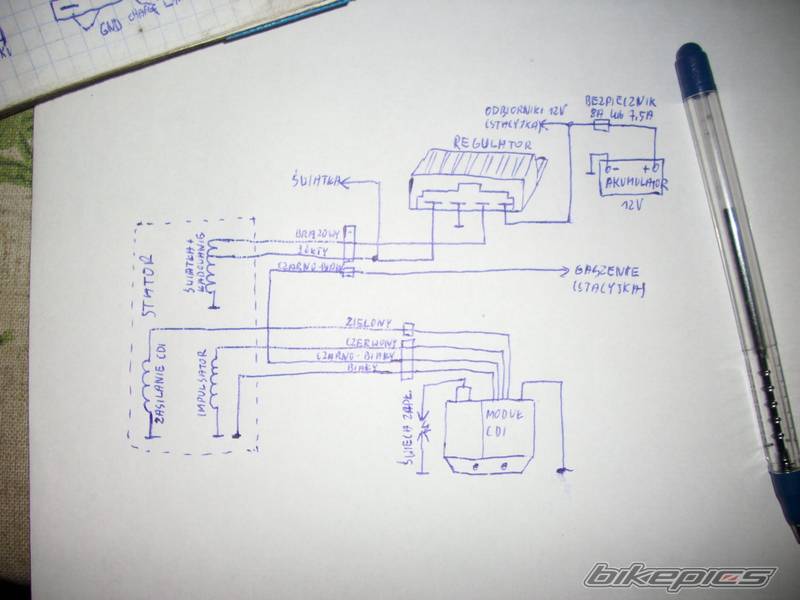 GND CHARGE
ODBIORNIKI 12V
(STACYJKA)
BEZPIECZNIK
8A lub 7,5A
REGULATOR
- +
AKUMULATOR
12V
ŚWIATŁA
STATOR
ŚWIATŁA +
ŁADOWANIE
BRĄZOWY
ŻÓŁTY
CZARNO-BIAŁY
GASZENIE
(STACYJKA)
ZASILANIE CDI
IMPULSATOR
ZIELONY
CZERWONY
CZARNO-BIAŁY
BIAŁY
ŚWIECA ZAPŁ.
MODUŁ
CDI
bikepics